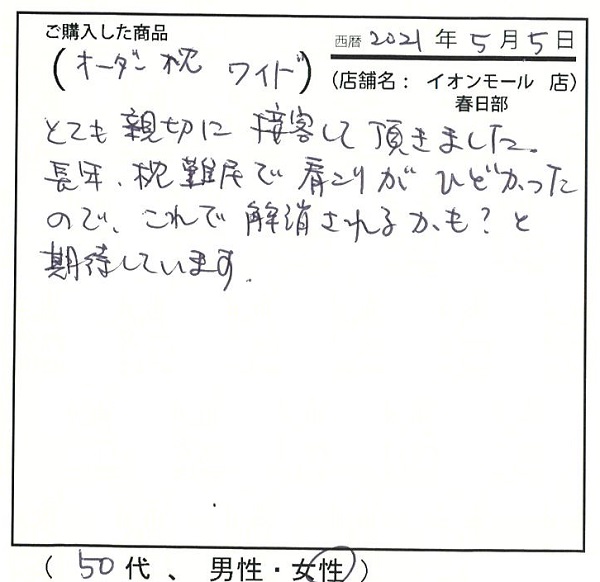 ご購入した商品
西暦 2021 年 5 月 5 日
(オーダー枕 ワイド)
(店舗名： イオンモール 店)
春日部
とても親切に接客して頂きました。
長年、枕難民で肩こりがひどかった
ので、これで解消されるかも？と
期待しています.
( 50 代 、 男性・女性 )